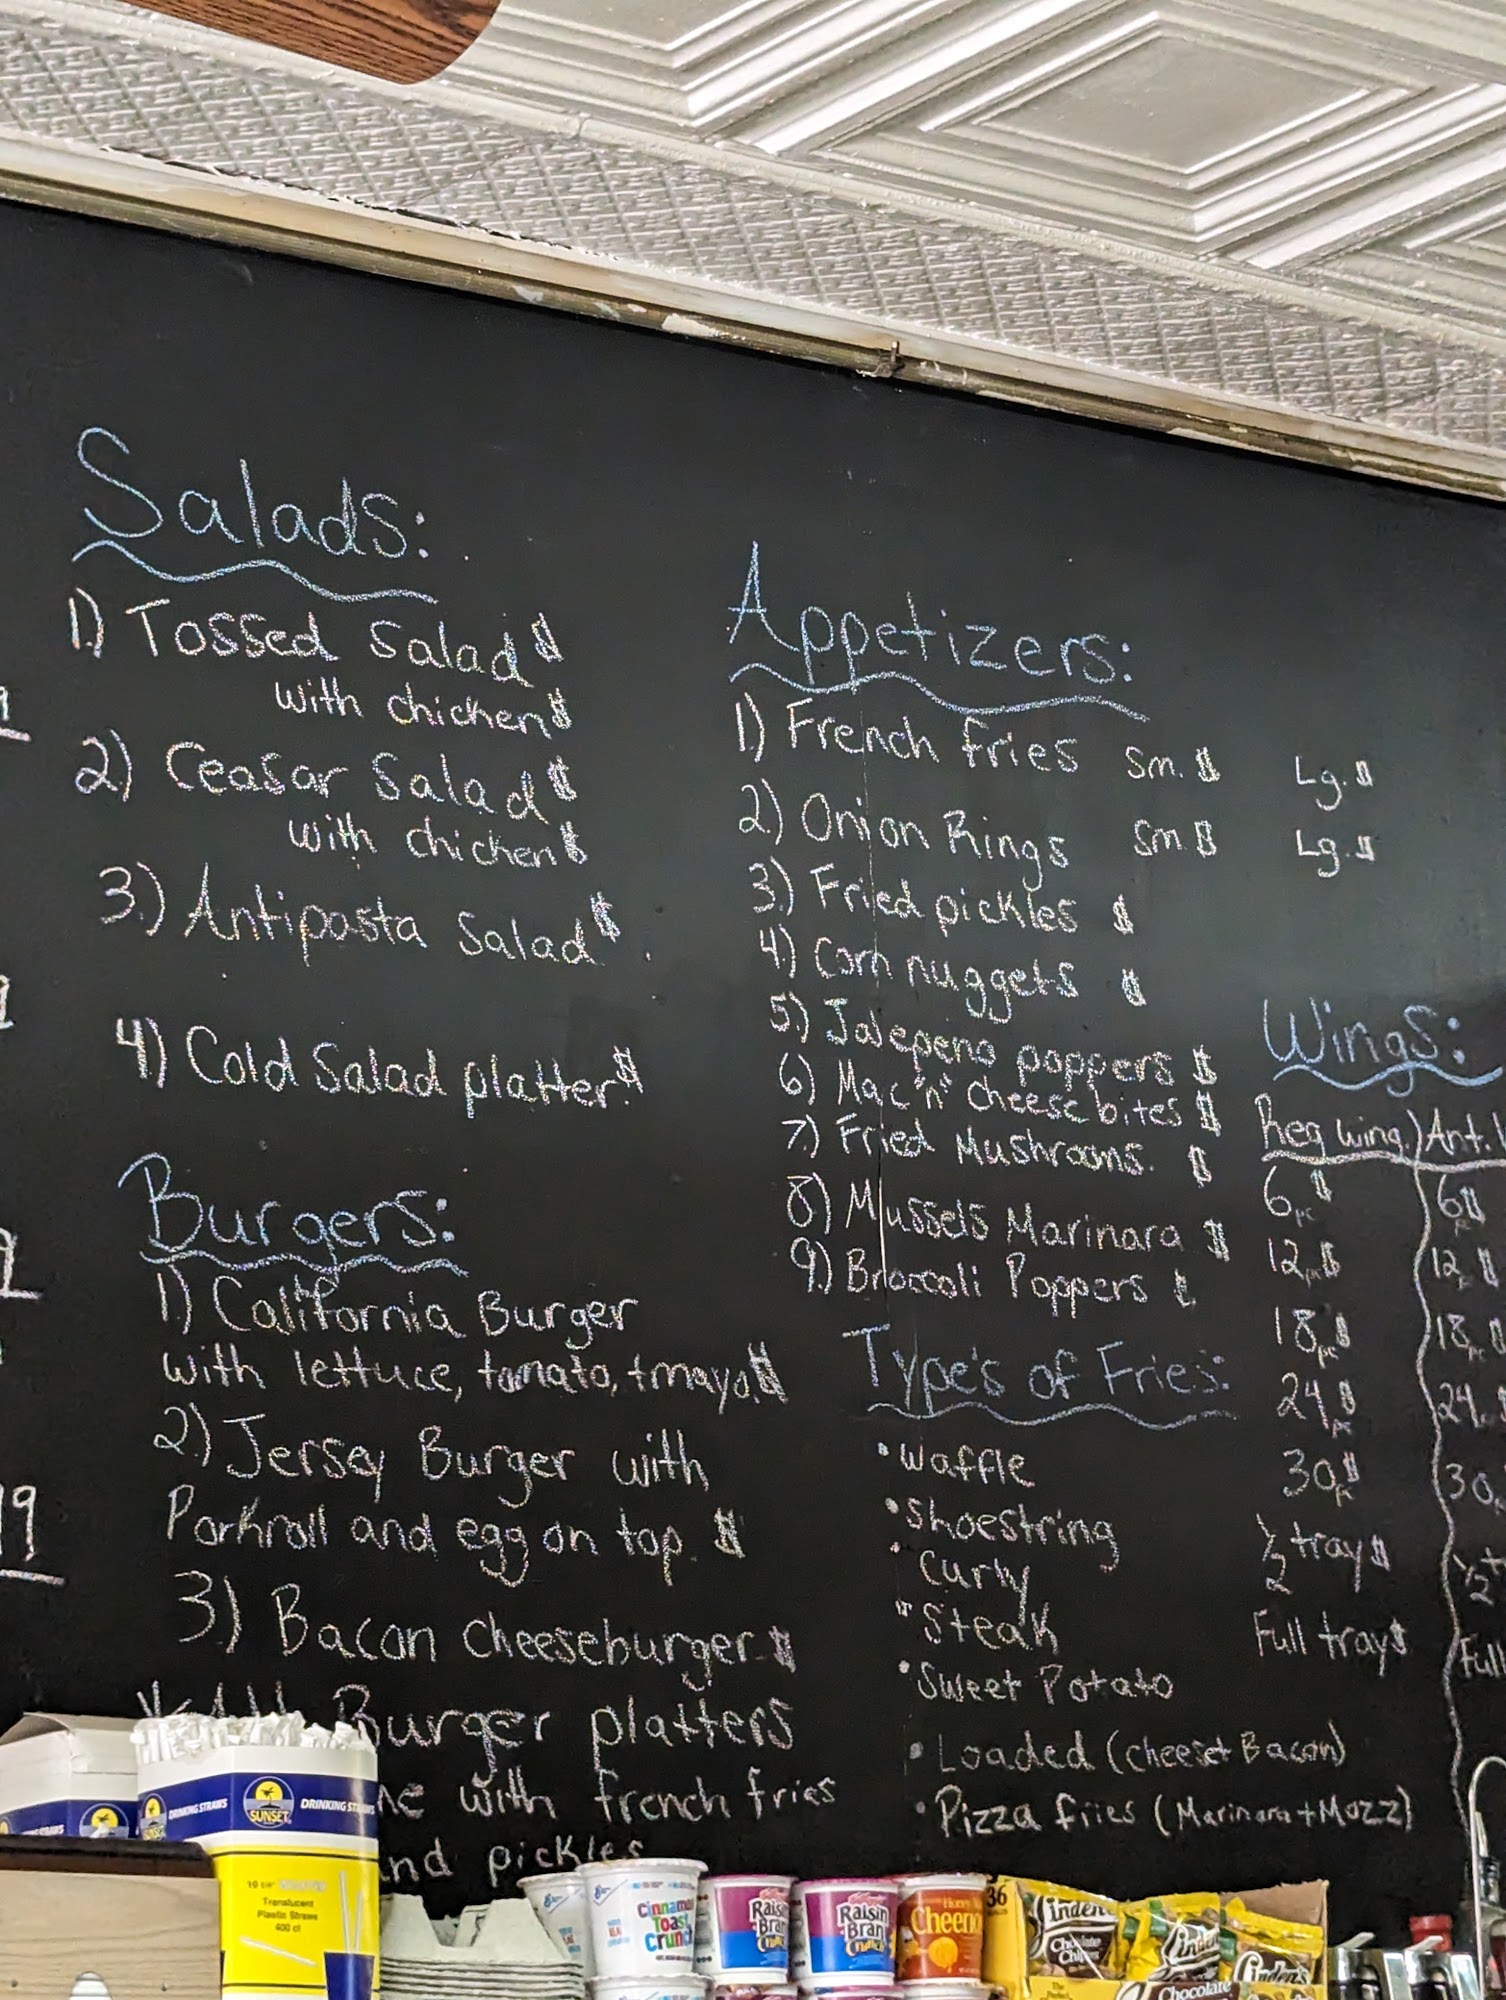 Salads:
1.) Tossed Salad $
with chicken $
2.) Ceasar Salad $
with chicken $
3.) Antipasta Salad $
4.) Cold Salad platter $
Burgers:
1.) California Burger
with lettuce, tomato, + mayo. $
2.) Jersey Burger with
Porkroll and egg on top. $
3.) Bacon cheeseburger $
Burger platters
with french fries
and pickles
Appetizers:
1.) French fries Sm. $ Lg. $
2.) Onion Rings Sm. $ Lg. $
3.) Fried pickles $
4.) Corn nuggets $
5.) Jalepeno poppers $
6.) Mac "n" Cheese bites $
7.) Fried Mushrooms. $
8.) Mussels Marinara $
9.) Broccoli Poppers
Type's of Fries:
• Waffle
• Shoestring
• Curly
• Steak
• Sweet Potato
• Loaded (cheese + Bacon)
• Pizza fries (Marinara + Mozz)
Wings:
Reg wing.
6 pc $
12 pc $
18 pc $
24 pc $
30 pc $
1/2 tray $
Full tray $
6 pc $
12 pc $
18 pc $
24
30
1/2
Full
DRINKING STRAWS
SUNSET
DRINKING STRAWS
Translucent
Plastic Straws
400 ct
Cinnamon
Toast
Crunch
Raisin
Bran
Crunch
Raisin
Bran
Crunch
Honey
36
Linden's
Chocolate
Chip
Linden's
Chocolate
Linden's